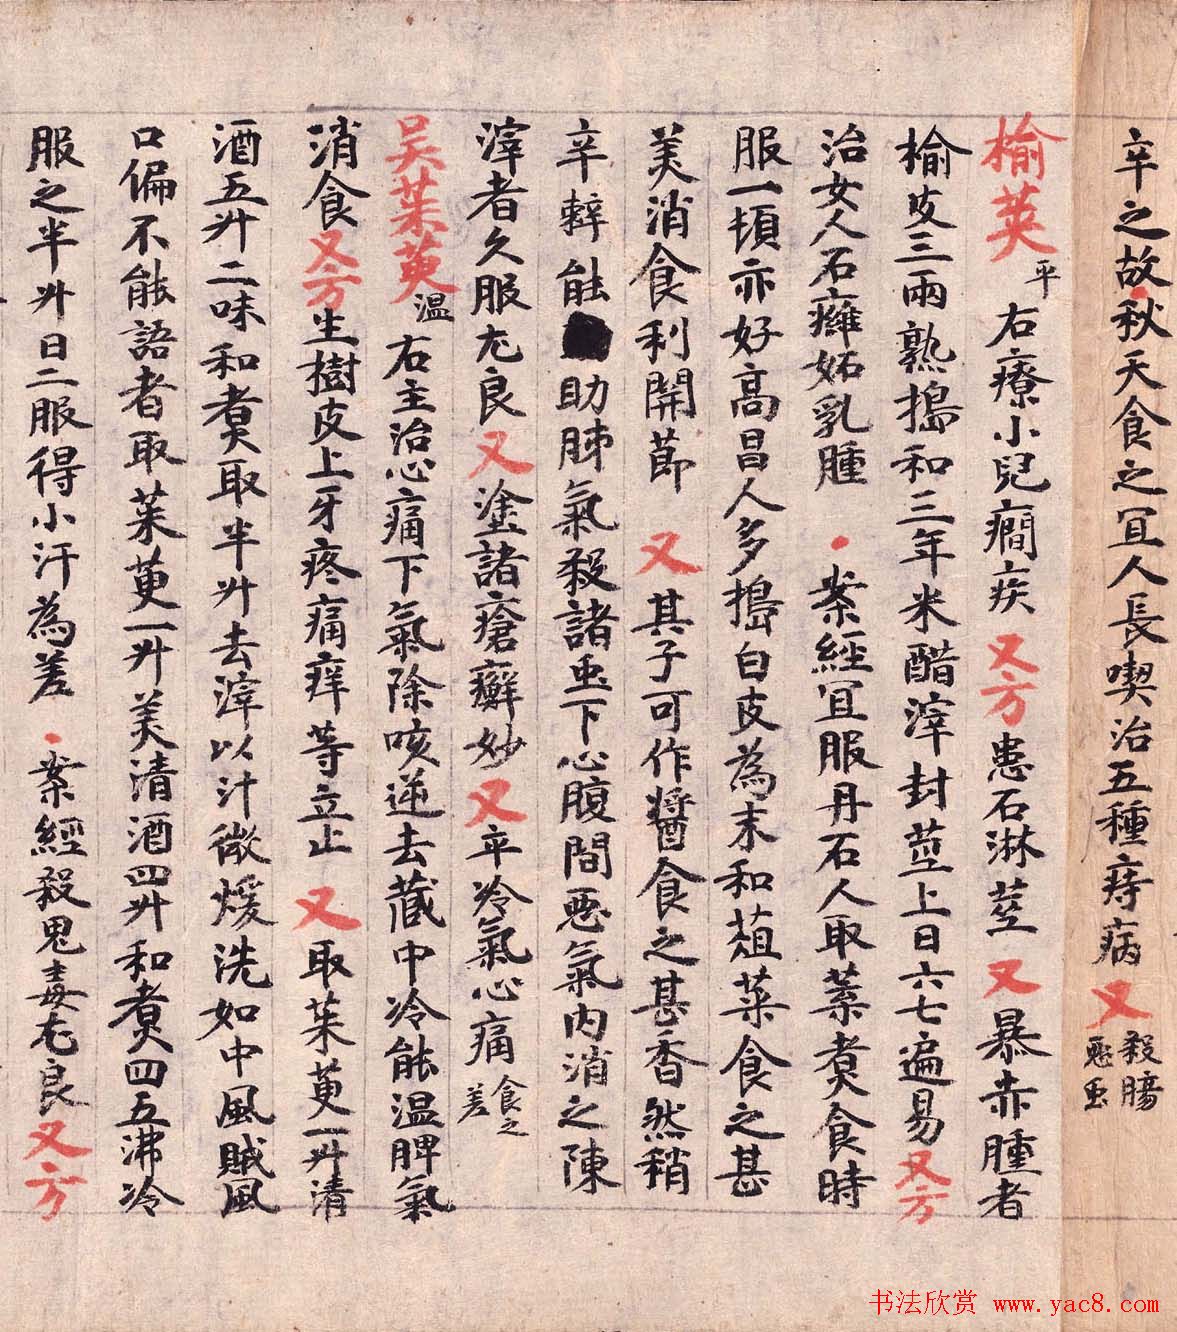 辛之故秋天食之宜人長喫治五種痔病又殺腸惡虫
榆荚平右療小兒癇疾又方患石淋莖又暴赤腫者
榆皮三兩熟搗和三年米醋滓封莖上日六七遍易又方
治女人石癰妬乳腫案經宜服丹石人取葉煮食時
服一頓亦好高昌人多搗白皮為末和葅菜食之甚
美消食利開節又其子可作醬食之甚香然稍
辛辣能助肺氣殺諸虫下心腹間惡氣内消之陳
滓者久服尤良又塗諸瘡癬妙又卒冷氣心痛食之差
吴茱萸温右主治心痛下氣除咳逆去藏中冷能温脾氣
消食又方生樹皮上牙疼痛痒等立止又取茱萸一升清
酒五升二味和煮取半升去滓以汁微煖洗如中風賊風
口偏不能語者取茱萸一升美清酒四升和煮四五沸冷
服之半升日二服得小汗為差案經殺鬼毒尤良又方
书法欣赏 www.yac8.com